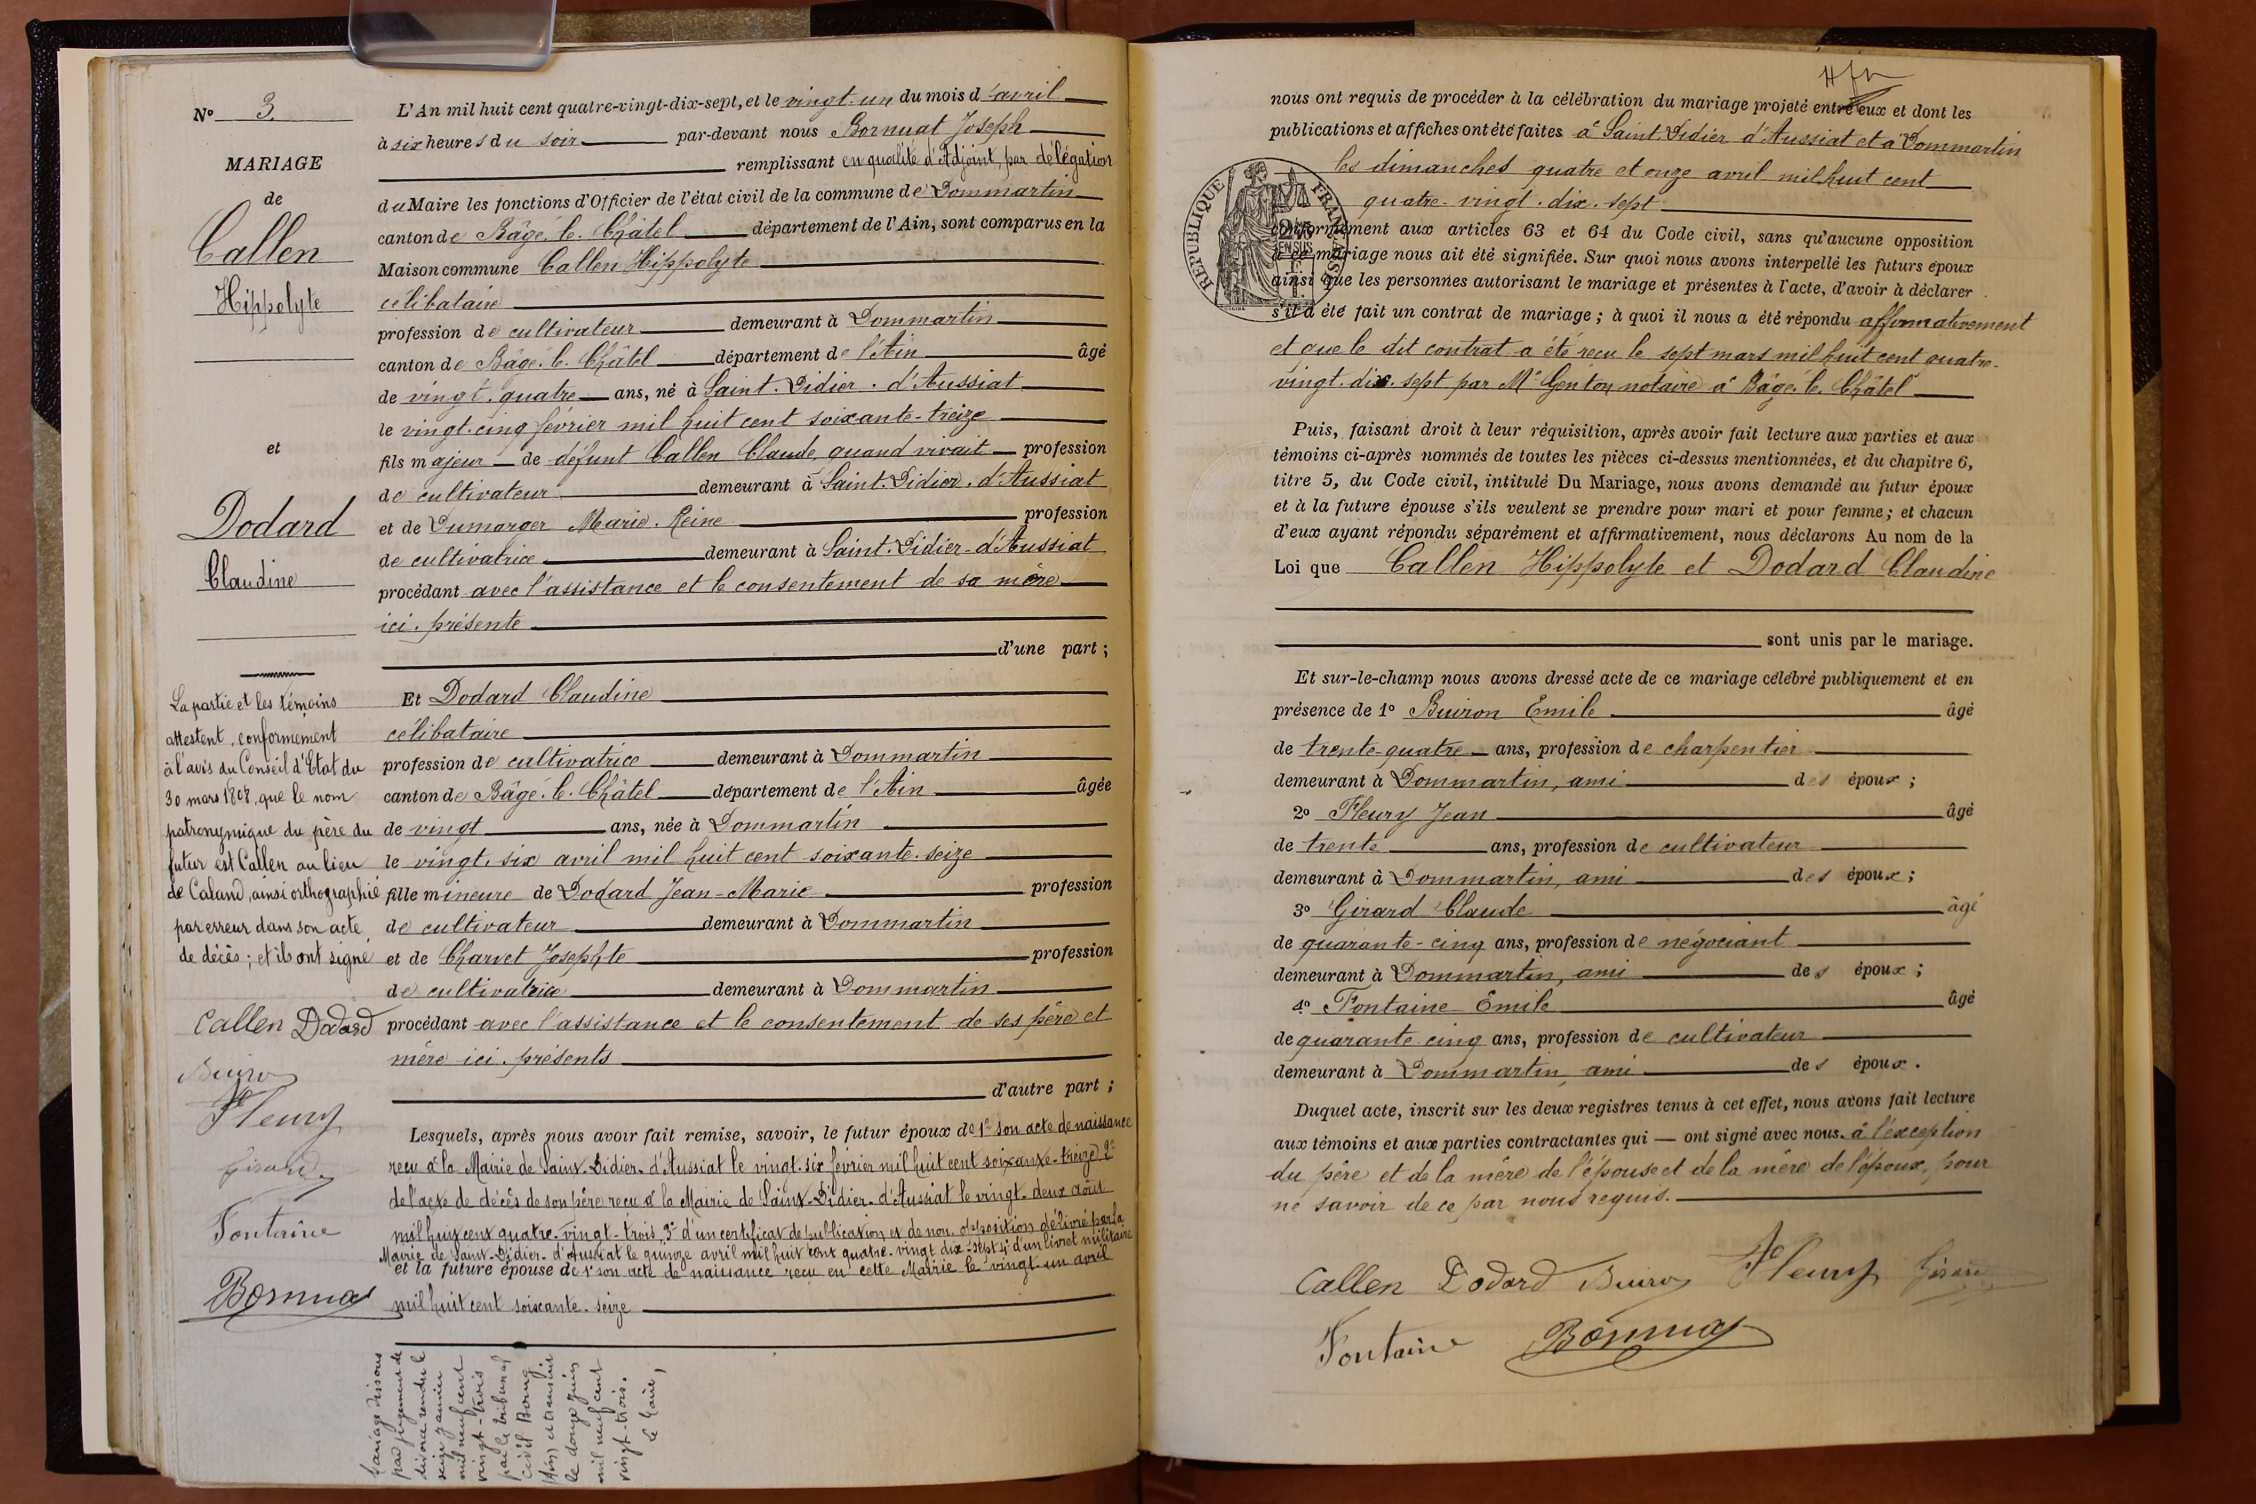 N° 3
MARIAGE
de
Callen
Hippolyte
et
Dodard
Claudine
La partie et les témoins
attestent, conformément
à l'avis du Conseil d'Etat du
30 mars 1808, que le nom
patronymique du père du
futur est Callen au lieu
de Caland, ainsi orthographié
par erreur dans son acte
de décès ; et ils ont signé
Callen Dodard
Buiron
Fleury
Girard
Fontaine
Bornuat
L'An mil huit cent quatre-vingt-dix-sept, et le vingt-un du mois d'avril
à six heures du soir par-devant nous Bornuat Joseph
remplissant en qualité d'Adjoint, par délégation
du Maire les fonctions d'Officier de l'état civil de la commune de Dommartin
canton de Bâgé-le-Châtel département de l'Ain, sont comparus en la
Maison commune Callen Hippolyte
célibataire
profession de cultivateur demeurant à Dommartin
canton de Bâgé-le-Châtel département de l'Ain âgé
de vingt-quatre ans, né à Saint-Didier-d'Aussiat
le vingt-cinq février mil huit cent soixante-treize
fils majeur de défunt Callen Claude, quand vivait profession
de cultivateur demeurant à Saint-Didier-d'Aussiat
et de Dumarger Marie-Reine profession
de cultivatrice demeurant à Saint-Didier-d'Aussiat
procédant avec l'assistance et le consentement de sa mère
ici présente
d'une part ;
Et Dodard Claudine
célibataire
profession de cultivatrice demeurant à Dommartin
canton de Bâgé-le-Châtel département de l'Ain âgée
de vingt ans, née à Dommartin
le vingt-six avril mil huit cent soixante-seize
fille mineure de Dodard Jean-Marie profession
de cultivateur demeurant à Dommartin
et de Charvet Josephte profession
de cultivatrice demeurant à Dommartin
procédant avec l'assistance et le consentement de ses père et
mère ici présents
d'autre part ;
Lesquels, après nous avoir fait remise, savoir, le futur époux de 1° son acte de naissance
reçu à la Mairie de Saint-Didier-d'Aussiat le vingt-six février mil huit cent soixante-treize 2°
de l'acte de décès de son père reçu à la Mairie de Saint-Didier-d'Aussiat le vingt-deux août
mil huit cent quatre-vingt-trois, 3° d'un certificat de publication et de non opposition délivré par la
Mairie de Saint-Didier-d'Aussiat le quinze avril mil huit cent quatre-vingt dix-sept 4° d'un livret militaire
et la future épouse de 1° son acte de naissance reçu en cette Mairie le vingt-un avril
mil huit cent soixante-seize
Mariage dissous
par jugement de
divorce rendu le
seize janvier
mil neuf cent
vingt-trois
par le tribunal
civil Bourg
(Ain) et transcrit
le douze juin
mil neuf cent
vingt-trois.
Le Maire,
nous ont requis de procéder à la célébration du mariage projeté entre eux et dont les
publications et affiches ont été faites à Saint-Didier d'Aussiat et à Dommartin
les dimanches quatre et onze avril mil huit cent
quatre-vingt-dix-sept
REPUBLIQUE FRANÇAISE
conformément aux articles 63 et 64 du Code civil, sans qu'aucune opposition
à ce mariage nous ait été signifiée. Sur quoi nous avons interpellé les futurs époux
ainsi que les personnes autorisant le mariage et présentes à l'acte, d'avoir à déclarer
s'il a été fait un contrat de mariage ; à quoi il nous a été répondu affirmativement
et que le dit contrat a été reçu le sept mars mil huit cent quatre-
vingt-dix-sept par Me Genton notaire à Bâgé-le-Châtel
Puis, faisant droit à leur réquisition, après avoir fait lecture aux parties et aux
témoins ci-après nommés de toutes les pièces ci-dessus mentionnées, et du chapitre 6,
titre 5, du Code civil, intitulé Du Mariage, nous avons demandé au futur époux
et à la future épouse s'ils veulent se prendre pour mari et pour femme ; et chacun
d'eux ayant répondu séparément et affirmativement, nous déclarons Au nom de la
Loi que Callen Hippolyte et Dodard Claudine
sont unis par le mariage.
Et sur-le-champ nous avons dressé acte de ce mariage célébré publiquement et en
présence de 1° Buiron Emile âgé
de trente-quatre ans, profession de charpentier
demeurant à Dommartin, ami des époux ;
2° Fleury Jean âgé
de trente ans, profession de cultivateur
demeurant à Dommartin, ami des époux ;
3° Girard Claude âgé
de quarante-cinq ans, profession de négociant
demeurant à Dommartin, ami des époux ;
4° Fontaine Emile âgé
de quarante cinq ans, profession de cultivateur
demeurant à Dommartin, ami des époux.
Duquel acte, inscrit sur les deux registres tenus à cet effet, nous avons fait lecture
aux témoins et aux parties contractantes qui — ont signé avec nous. à l'exception
du père et de la mère de l'épouse et de la mère de l'époux, pour
ne savoir de ce par nous requis.
Callen Dodard Buiron Fleury Girard
Fontaine Bornuat